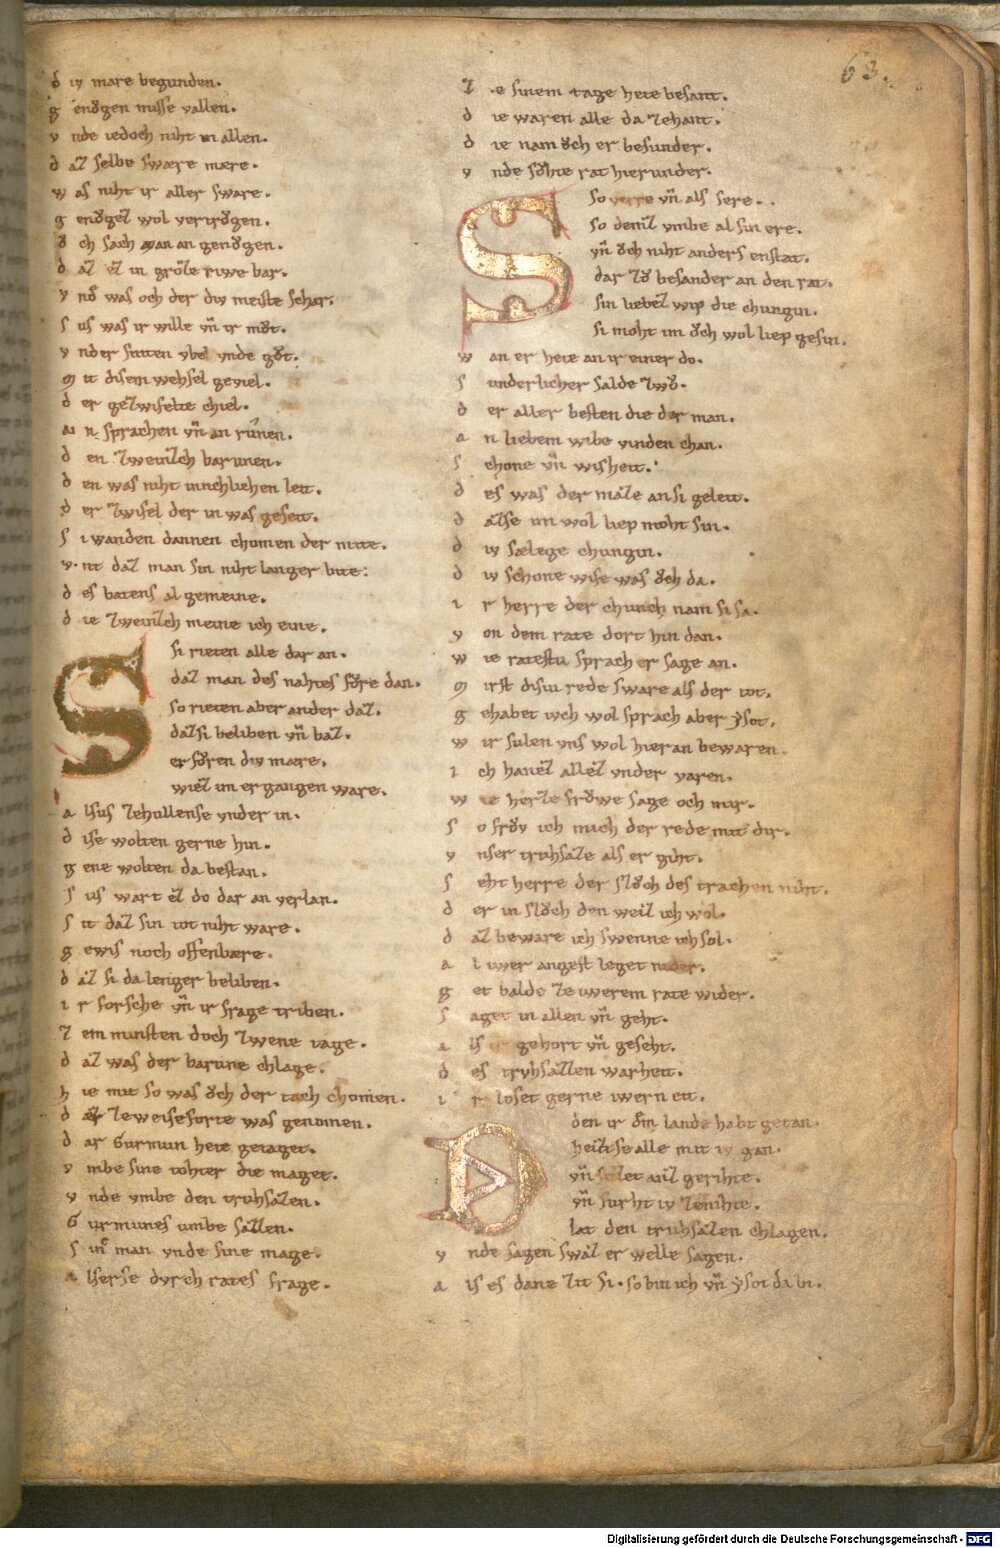 63.
d iv mare begunden.
g enůgen misse vallen.
v nde iedoch niht in allen.
d az selbe swære mære.
w as niht ir aller sware.
g enůgez wol vertrůgen.
ů ch sach man an genůgen.
d az ez in groze riwe bar.
v nď was och der div meiste schar.
s us was ir wille vñ ir můt.
v nder sniten vbel vnde gůt.
m it disem wehsel geviel.
d er gezwiselte chiel.
an sprachen vñ an runen.
d en zweinzch barunen.
d en was niht innchlichen leit.
d er zwisel der in was geseit.
s i wanden dannen chomen der mite.
v nt daz man sin niht langer bite.
d es batens al gemeine.
d ie zweinzch meine ich eine.
S si rieten alle dar an.
daz man des nahtes fůre dan.
so rieten aber ander daz.
daz si beliben vñ baz.
er fůren div mare.
wiez im ergangen ware.
a lsus zehullense vnder in.
d ise wolten gerne hin.
g ene wolten da bestan.
s us wart ez do dar an verlan.
s it daz sin tot niht ware.
g ewis noch offenbære.
d az si da lenger beliben.
i r forsche vñ ir frage triben.
z em minsten doch zwene tage.
d az was der barune chlage.
h ie mit so was ůch der tach chomen.
d az zeweiseforte was genomen.
d ar Gurmun hete getaget.
v mbe sine tohter die maget.
v nde vmbe den truhsazen.
G urmunes vmbe sazzen.
s in man vnde sine mage.
a lserse dvrch rates frage.
z e sinem tage hete besant.
d ie waren alle da zehant.
d ie nam ůch er besunder.
v nde sůhte rat hierunder.
S so verre vñ als sere.
so deniz vmbe al sin ere.
vñ ůch niht anders enstat.
dar zů besander an den rat.
sin liebez wip die chungin.
si moht im ůch wol liep gesin.
w an er hete an ir einer do.
s underlicher salde zwo.
d er aller besten die der man.
a n liebem wibe vinden chan.
s chone vñ wisheit.
d es was der maze an si geleit.
d azse im wol liep moht sin.
d iv sælege chungin.
d iv schone wise was ůch da.
i r herre der chunch nam si sa.
v on dem rate dort hin dan.
w ie ratestu sprach er sage an.
m irst disiu rede sware als der tot.
g ehabet iuch wol sprach aber ysot.
w ir sulen vns wol hieran bewaren.
i ch hanez allez vnder varen.
w ie herze frůwe sage och mir.
s o frov ich mich der rede mit dir.
v nser truhsaze als er giht.
s eht herre der slůch des trachen niht.
d er in slůch den weiz ich wol.
d az beware ich swenne ich sol.
a l iwer angest leget nider.
g et balde ze iuwerem rate wider.
s aget in allen vñ geht.
a ls ir gehort vñ geseht.
d es trvhsazzen warheit.
i r loset gerne iwern eit.
D den ir dem lande habt getan.
heizse alle mit iv gan.
vñ sizet anz gerihte.
vñ furht iv zenihte.
lat den truhsazen chlagen.
v nde sagen swaz er welle sagen.
a ls es danz zit si. so bin ich vñ ysot da bi.
Digitalisierung gefördert durch die Deutsche Forschungsgemeinschaft - DFG